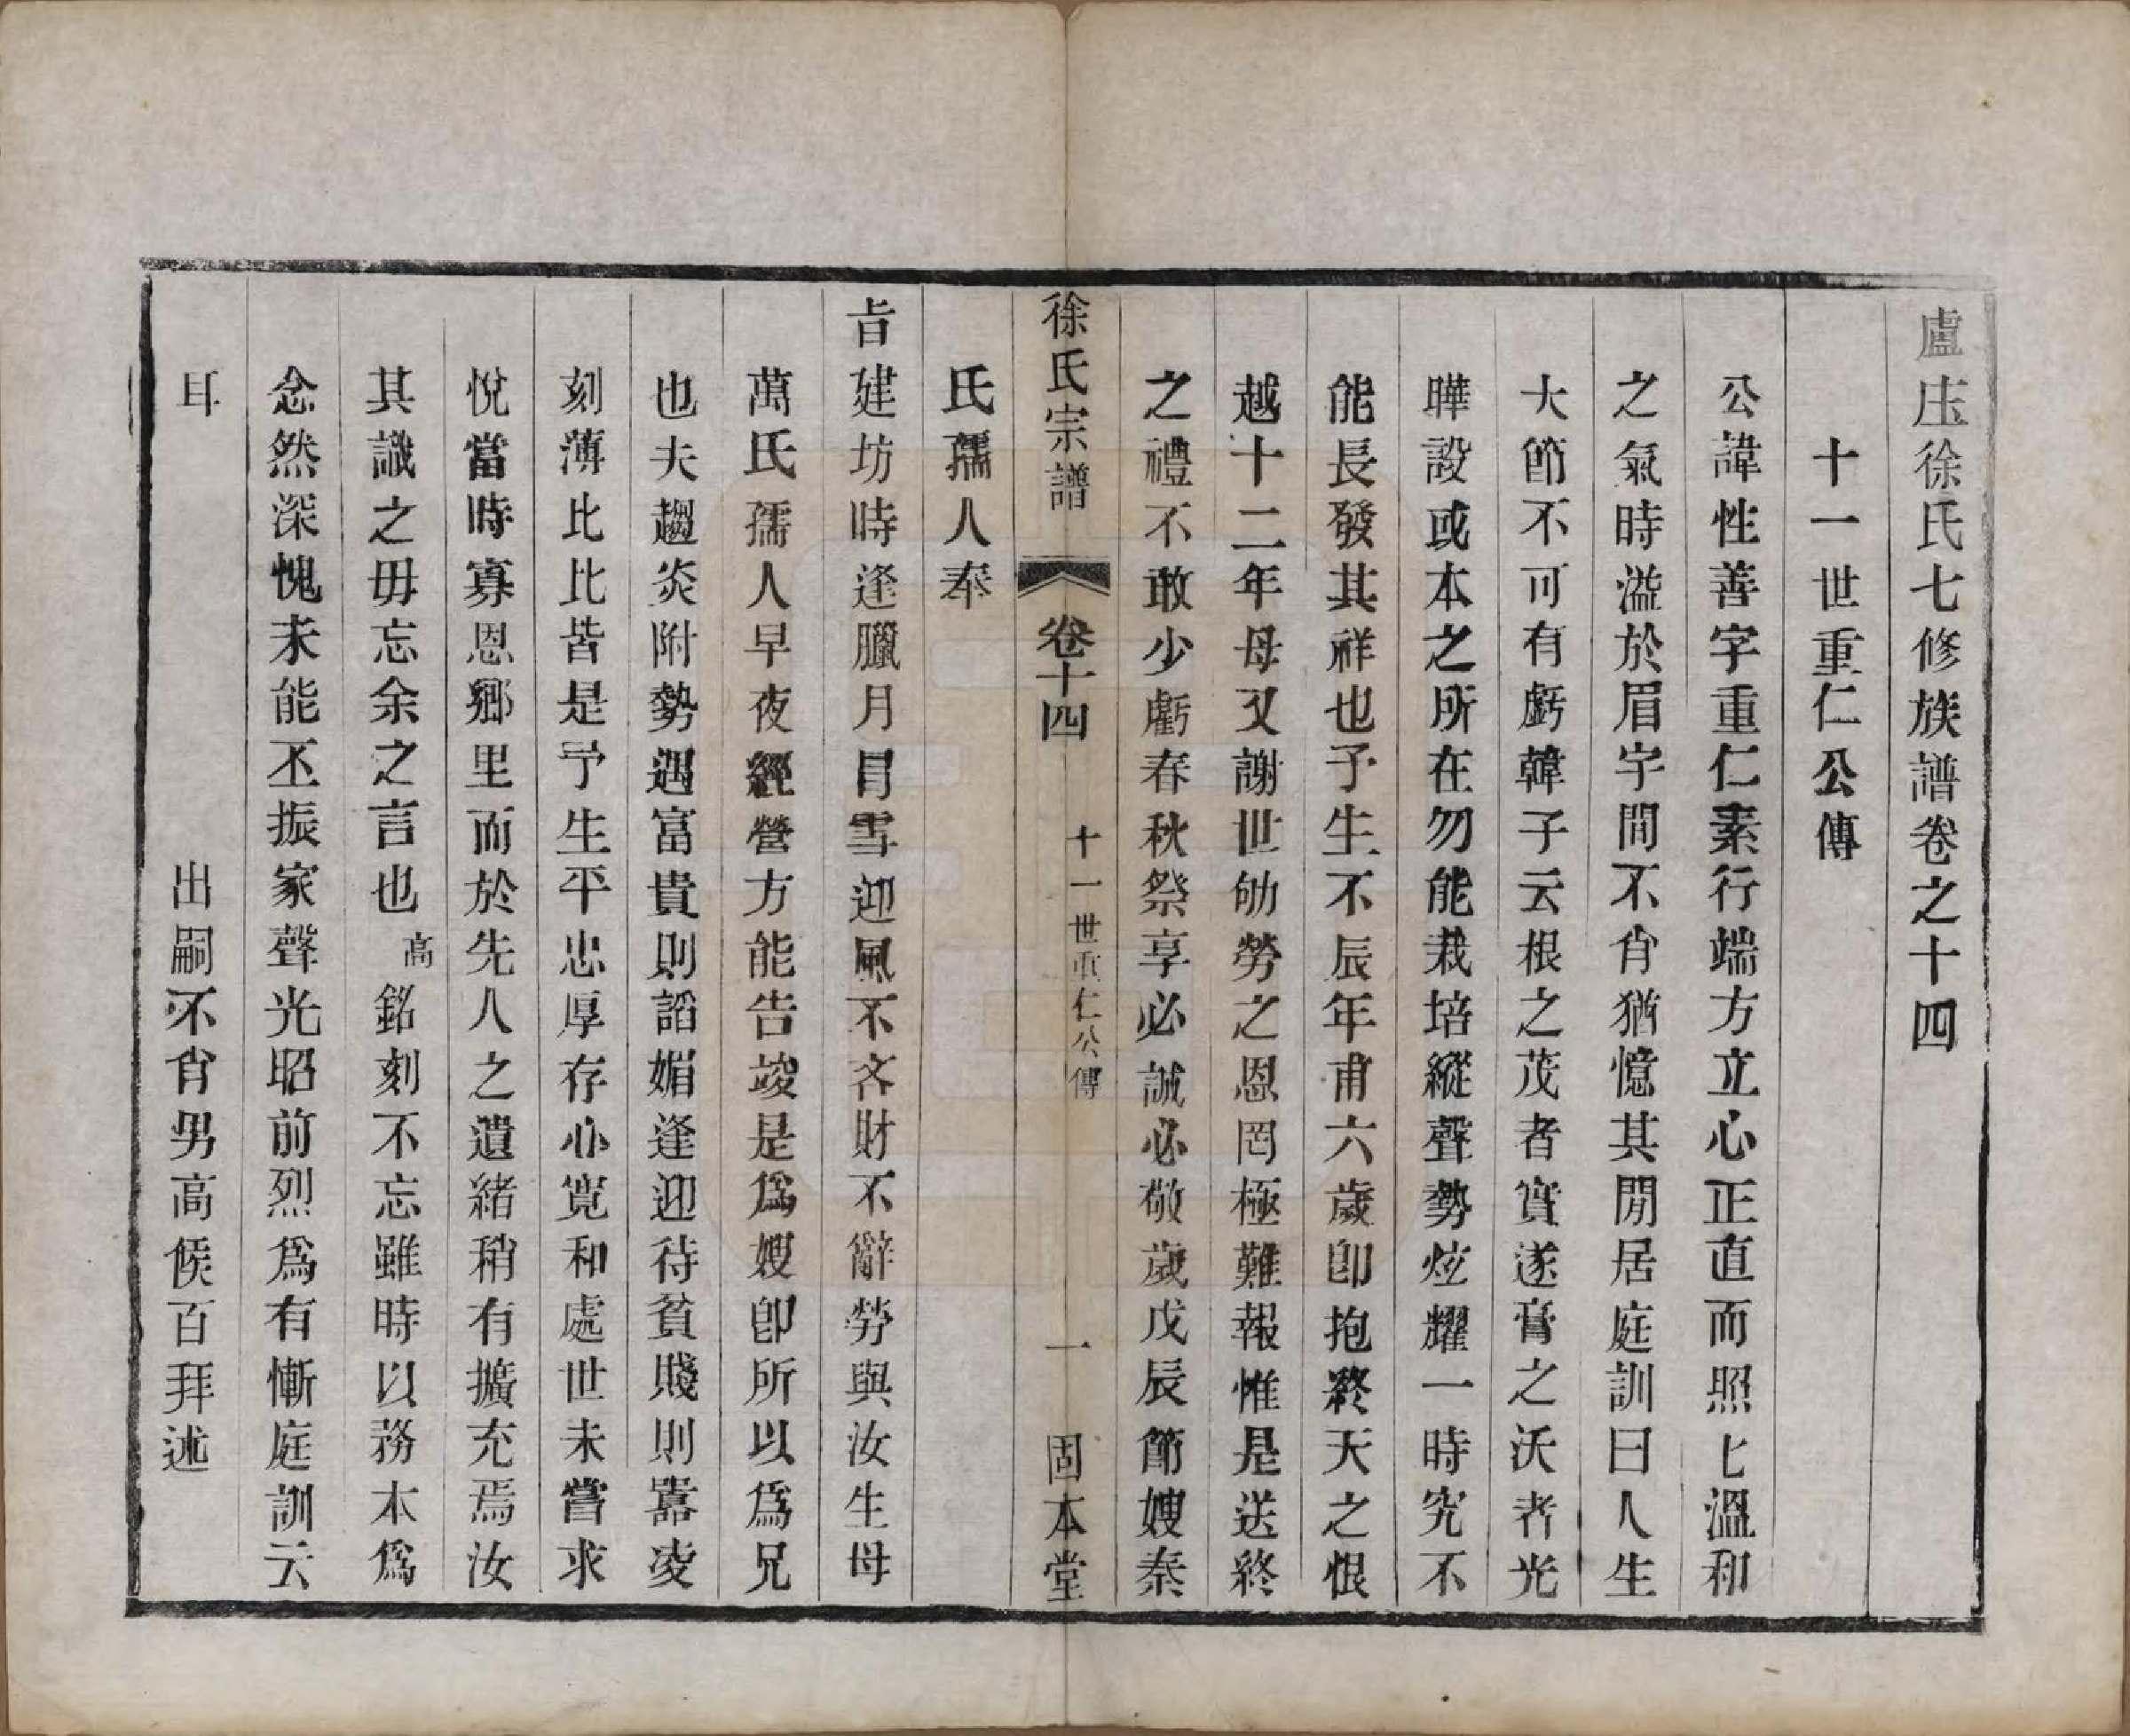 盧庄徐氏七修族譜卷之十四
十一世重仁公傳
公諱性善字重仁素行端方立心正直而照匕溫和
之氣時溢於眉宇間不肖猶憶其閒居庭訓曰人生
大節不可有虧韓子云根之茂者實遂膏之沃者光
曄設或本之所在勿能栽培縱聲勢炫耀一時究不
能長發其祥也予生不辰年甫六歲卽抱終天之恨
越十二年母又謝世劬勞之恩罔極難報惟是送終
之禮不敢少虧春秋祭享必誠必敬歲戊辰節嫂秦
氏孺人奉
徐氏宗譜 卷十四 十一世重仁公傳 一 固本堂
旨建坊時逢臘月冐雪迎風不吝財不辭勞與汝生母
萬氏孺人早夜經營方能告竣是爲嫂卽所以爲兄
也夫趨炎附勢遇富貴則諂媚逢迎待貧賤則嚣凌
刻薄比比皆是予生平忠厚存心寬和處世未嘗求
悅當時寡恩鄉里而於先人之遺緒稍有擴充焉汝
其識之毋忘余之言也高銘刻不忘雖時以務本爲
念然深愧未能丕振家聲光昭前烈爲有慚庭訓云
耳
出嗣不肖男高候百拜述